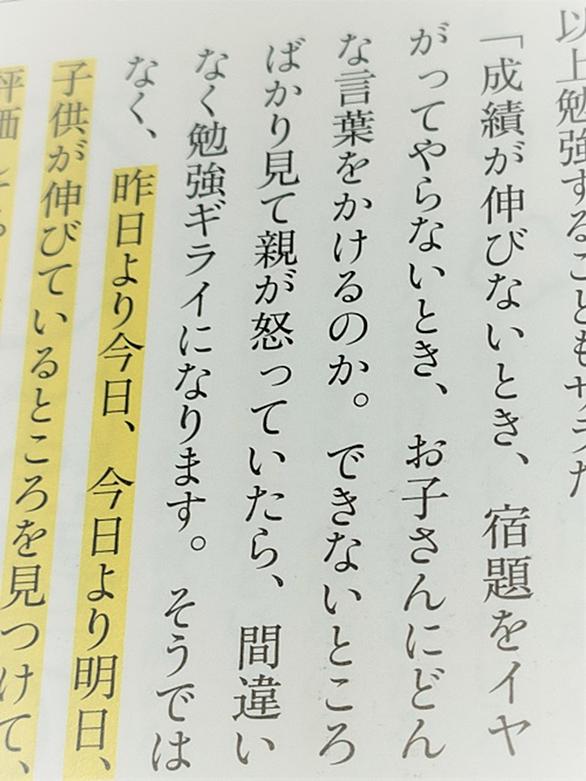 以上勉強することもサラだ
「成績が伸びないとき、宿題をイヤ
がってやらないとき、お子さんにどん
な言葉をかけるのか。できないところ
ばかり見て親が怒っていたら、間違い
なく勉強ギライになります。そうでは
なく、昨日より今日、今日より明日、
子供が伸びているところを見つけて、
評価